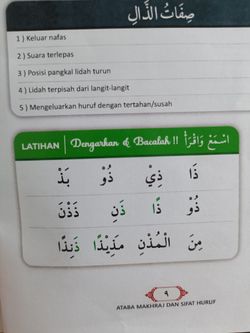 صِفَاتُ الذَّالِ
1 ) Keluar nafas
2 ) Suara terlepas
3 ) Posisi pangkal lidah turun
4 ) Lidah terpisah dari langit-langit
5 ) Mengeluarkan huruf dengan tertahan/susah
LATIHAN Dengarkan & Bacalah !! اسْمَعْ وَاقْرَأْ
ذَا ذِيْ ذُوْ بَذْ
ذُوْ ذًا ذَنِ ذَذْنَ
مِنَ الْمُذْنِ مَذِيْذًا ذَنِذًا
٩
ATABA MAKHRAJ DAN SIFAT HURUF